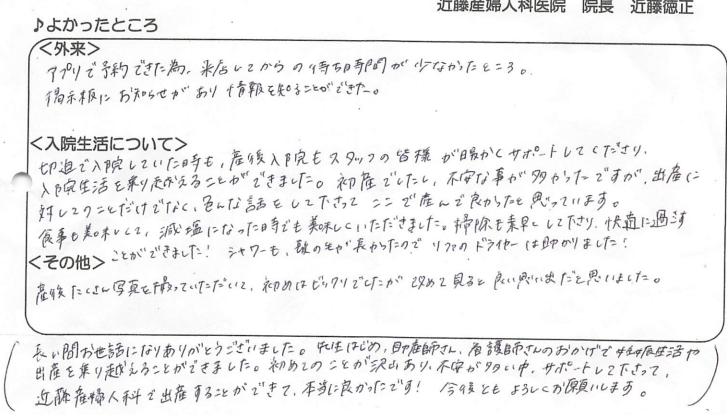 近藤産婦人科医院 院長 近藤徳正
♪よかったところ
<外来>
アプリで予約できた為、来店してからの待ち時間が少なかったところ。
掲示板にお知らせがあり情報を知ることができた。
<入院生活について>
切迫で入院していた時も、産後入院もスタッフの皆様が暖かくサポートしてくださり、
入院生活を乗り越えることができました。初産でしたし、不安な事が多かったですが、出産に
対してのことだけでなく、色んな話をして下さってここで産んで良かったと思っています。
食事も美味しくて、減塩になった時でも美味しくいただきました。掃除も素早くして下さり、快適に過ごす
ことができました! シャワーも、髪の毛が長かったのでリファのドライヤーは助かりました!
<その他>
産後たくさん写真を撮っていただいて、初めはビックリでしたが改めて見ると良い思い出だと思いました。
長い間お世話になりありがとうございました。先生はじめ、助産師さん、看護師さんのおかげで妊娠生活や
出産を乗り越えることができました。初めてのことが沢山あり、不安が多い中、サポートして下さって、
近藤産婦人科で出産することができて、本当に良かったです! 今後ともよろしくお願いします。